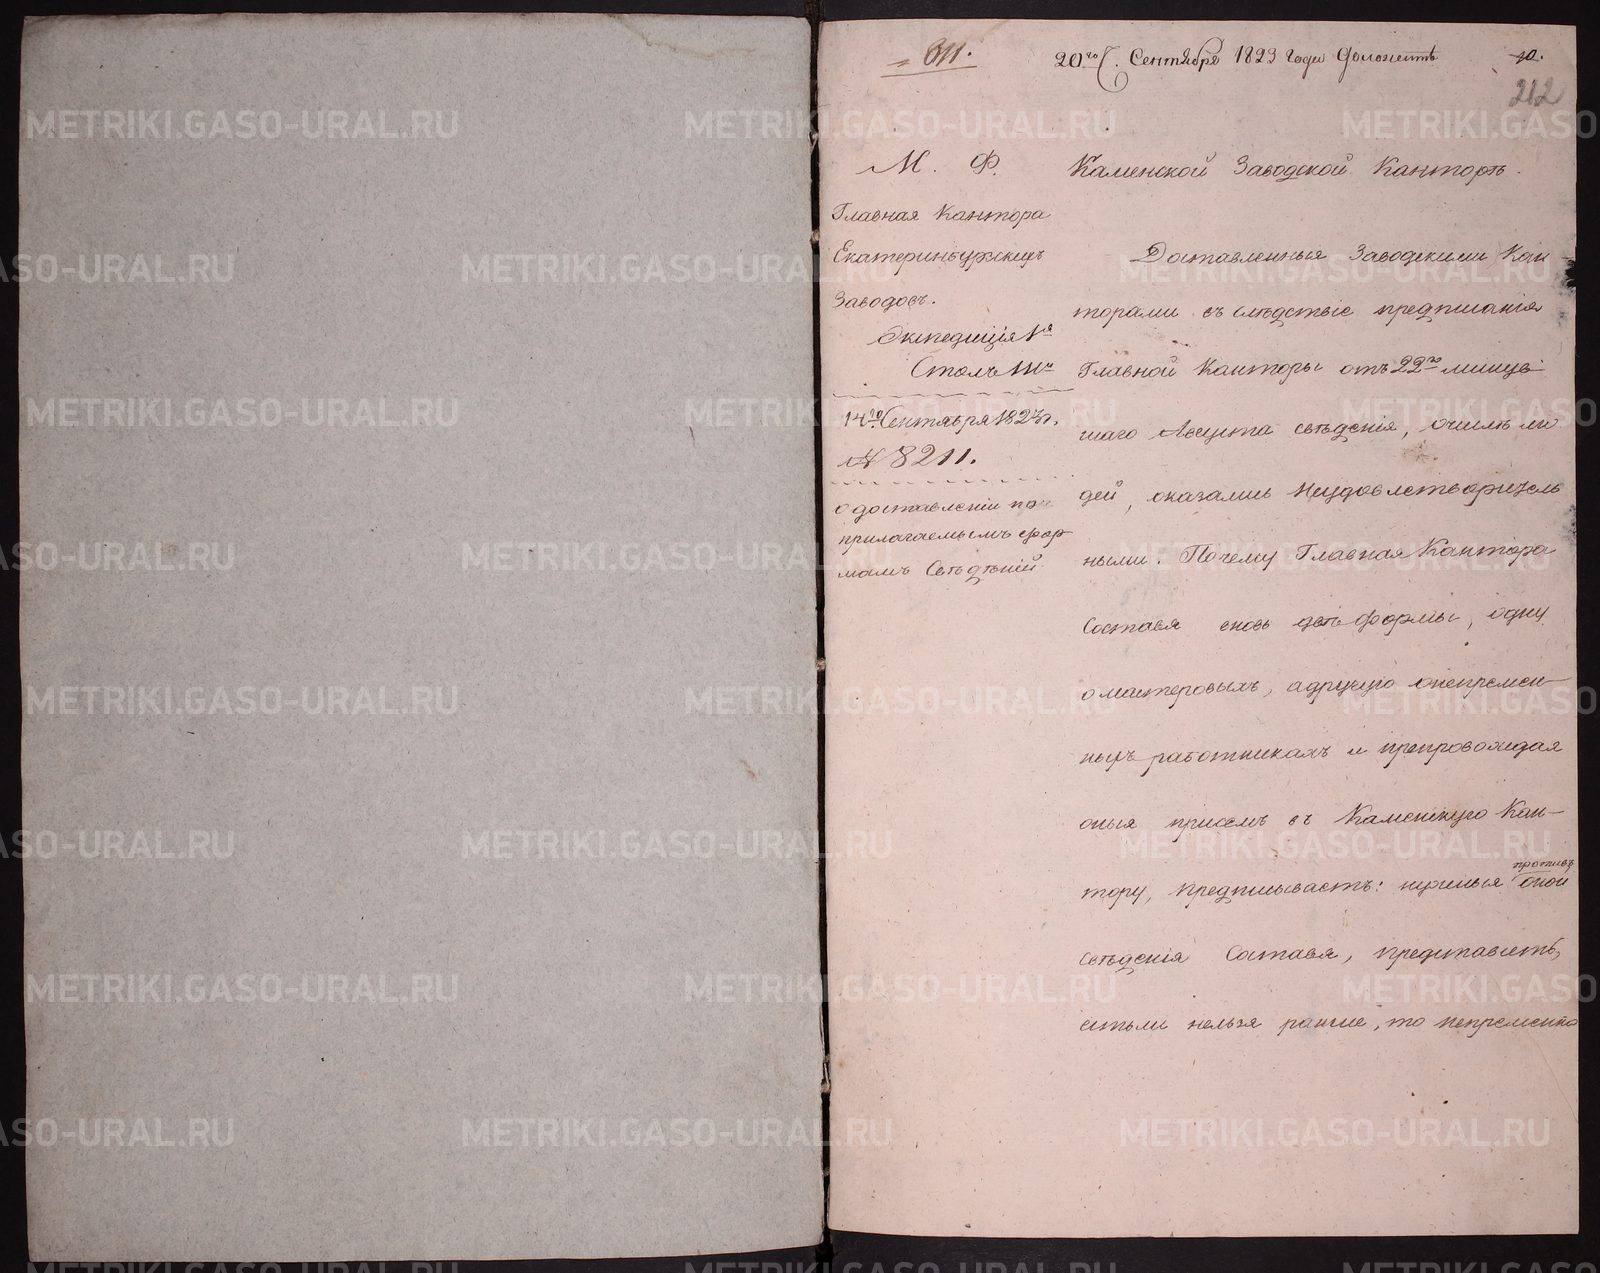 20го Сентября 1823 года доложить
212
М. Ф.
Главная Кантора
Екатеринбургскихъ
Заводовъ.
Экспедиція 1я
Столъ
14го Сентября 1823 г.
№ 8211.
о доставленіи по
прилагаемымъ фор
мамъ свѣдѣній
Каменской Заводской Канторѣ.
Доставленныя Заводскими Кан
торами въ слѣдствіе предписанія
Главной Канторы отъ 22го минув
шаго Августа свѣденія, о числѣ лю
дей, оказались неудовлетворитель
ными. Почему Главная Кантора
составя вновь двѣ формы, одну
о мастеровыхъ, а другую о непремен-
ныхъ работникахъ и препровождая
оныя присемъ въ Каменскую Кан-
тору, предписываетъ: нужныя противъ оной
свѣденія составя, представить,
естьли нельзя ранѣе, то непременно
METRIKI.GASO-URAL.RU